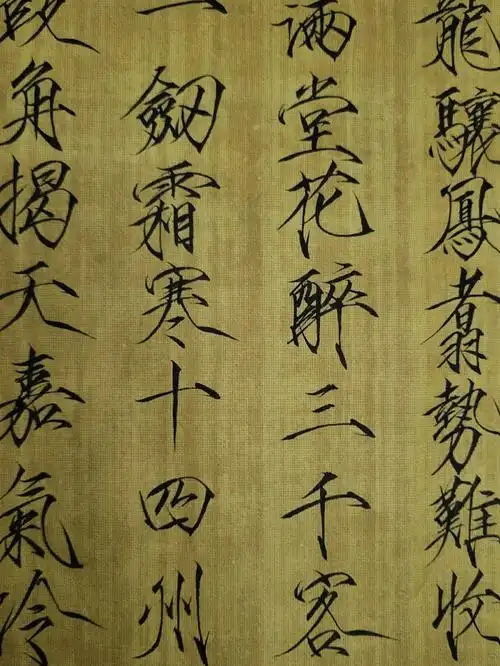 龍驤鳳翥勢難收
滿堂花醉三千客
一劔霜寒十四州
鼓角揭天嘉氣冷